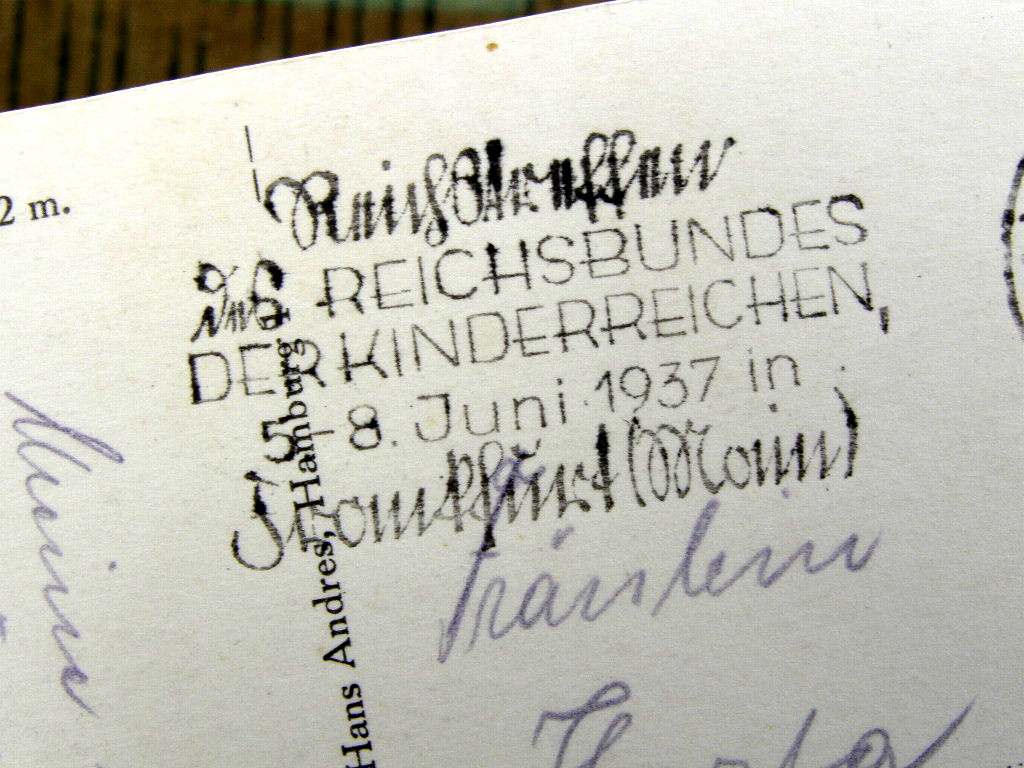 2 m.
Reichstreffen
des REICHSBUNDES
DER KINDERREICHEN,
5.-8. Juni 1937 in
Frankfurt (Main)
Hans Andres, Hamburg
Fräulein